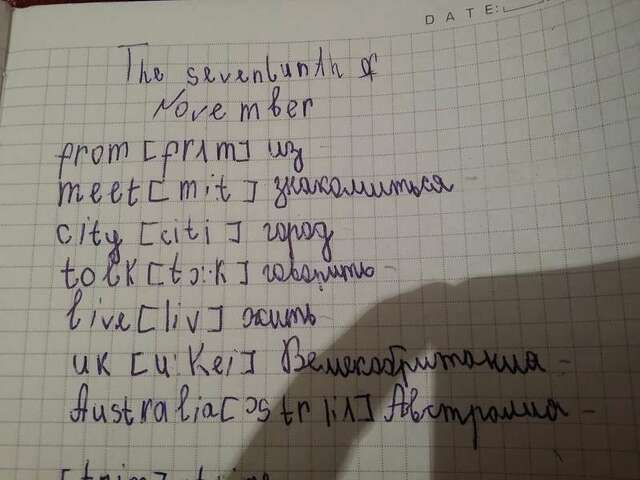 DATE:
The sevenlunth of
November
from [frʌm] из
meet [mit] знакомиться
city [citi] город
tolk [tɔ:k] говорить
live [liv] жить
UK [u:Kei] Великобритания
Australia [ɔstrliʌ] Австролиа